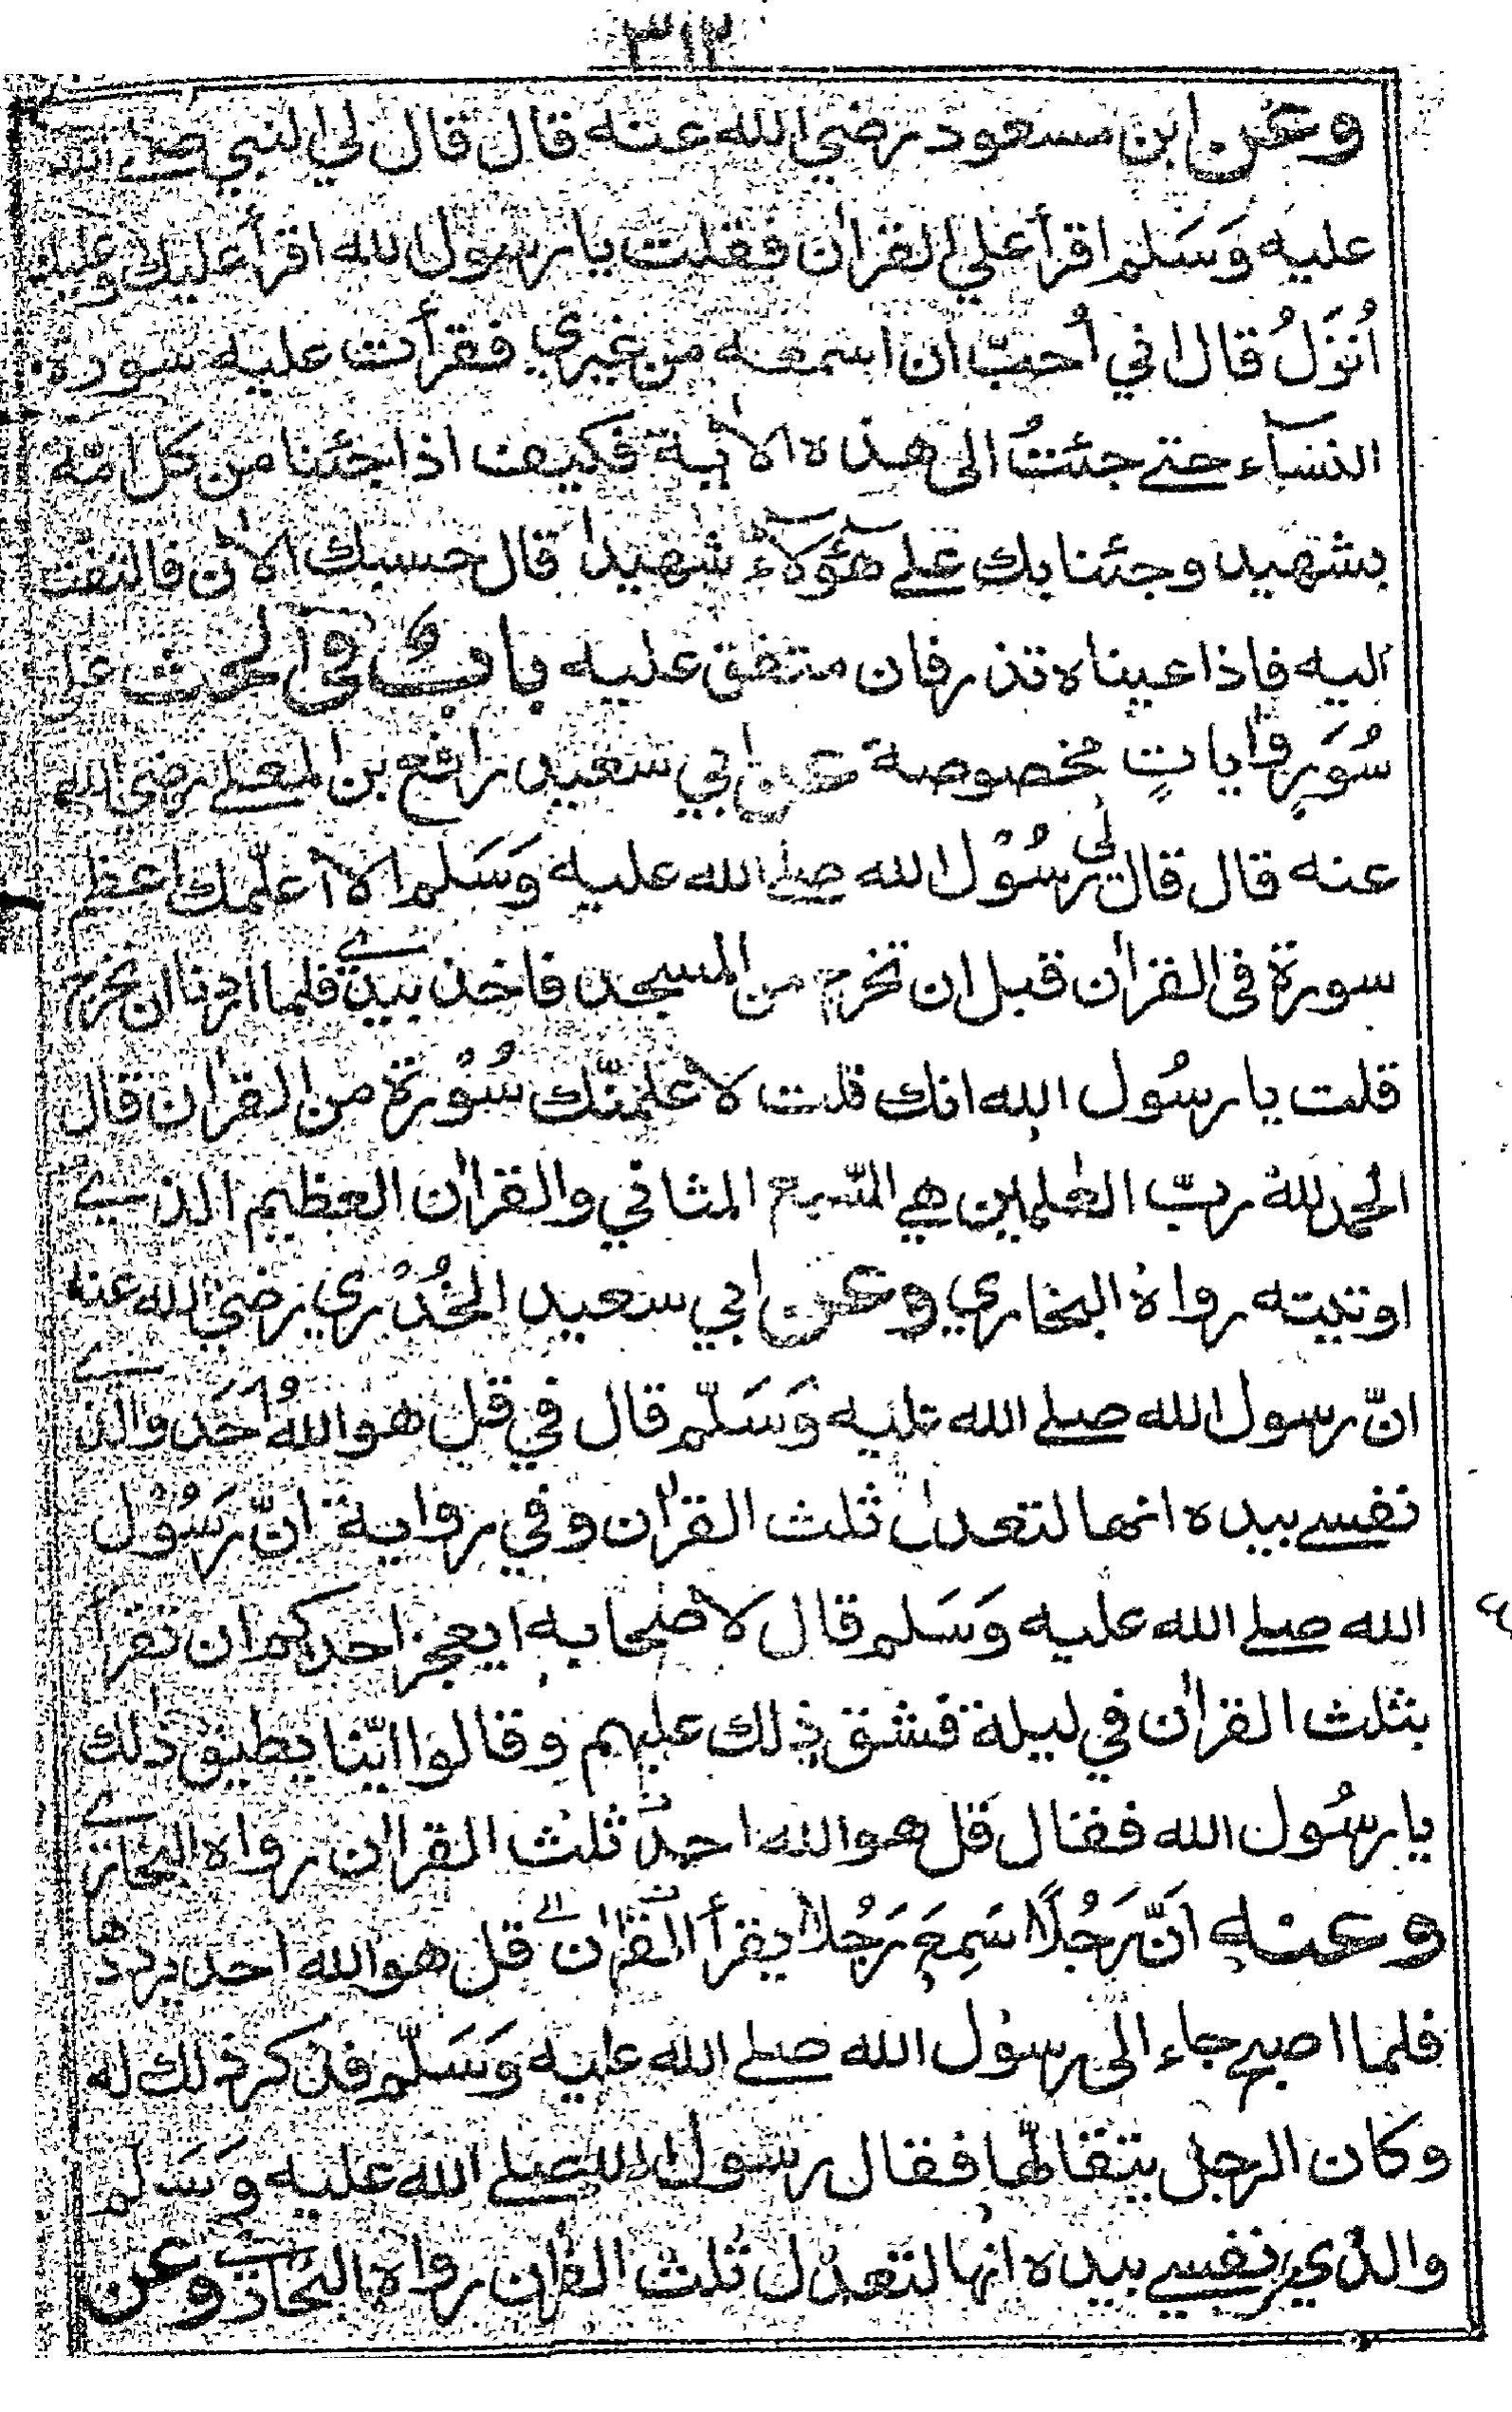 ٣١٢
وعن ابن مسعود رضي الله عنه قال قال لي النبي صلى الله
عليه وَسَلم اقرأ علي القراٰن فقلت يا رسول الله اقرأ عليك وعليك
اُنزَلُ قال اني اُحبّ ان اسمعه من غيري فقرأت عليه سورة
النسآء حتى جئتُ الى هذه الاٰية فكيف اذا جئنا من كل امّة
بشهيد وجئنا بك على هٓؤلآء شهيدا قال حسبك الاٰن فالتفتّ
اليه فاذا عيناه تذرفان متفق عليه بابٌ في الحث على
سُوَرٍ واٰياتٍ مخصوصة عن ابي سعيد رافع بن المعلى رضي الله
عنه قال قال لي رسُوْل الله صلى الله عليه وَسَلم الا اعلّمك اعظم
سورة في القراٰن قبل ان تخرج من المسجد فاخذ بيدي فلما اردنا ان نخرج
قلت يا رسُول الله انك قلت لاعلمنّك سُوْرة من القراٰن قال
الحمد لله ربّ العٰلمين هي السبع المثاني والقراٰن العظيم الذي
اوتيته رواه البخاري وعن ابي سعيد الخُدْري رضي الله عنه
انّ رسول الله صلى الله عليه وَسَلّم قال في قل هو اللهُ اَحَد والذي
نفسي بيده انها لتعدل ثلث القراٰن وفي رواية انّ رَسُوْل
الله صلى الله عليه وَسَلم قال لاصحابه ايعجز احدكم ان تقرأ
بثلث القراٰن في ليلة فشق ذلك عليهم وقالوا ايّنا يطيق ذلك
يا رسُول الله فقال قل هو الله احدٌ ثلث القراٰن رواه البخاري
وعنه انّ رَجُلًا سَمِعَ رَجُلا يقرأ القراٰن قل هو الله احد يرددها
فلما اصبح جاء الى رسول الله صلى الله عليه وَسَلّم فذكر ذلك له
وكان الرجل يتقالّها فقال رسول الله صلى الله عليه وَسَلم
والذي نفسي بيده انها لتعدل ثلث القراٰن رواه البخاري وعن